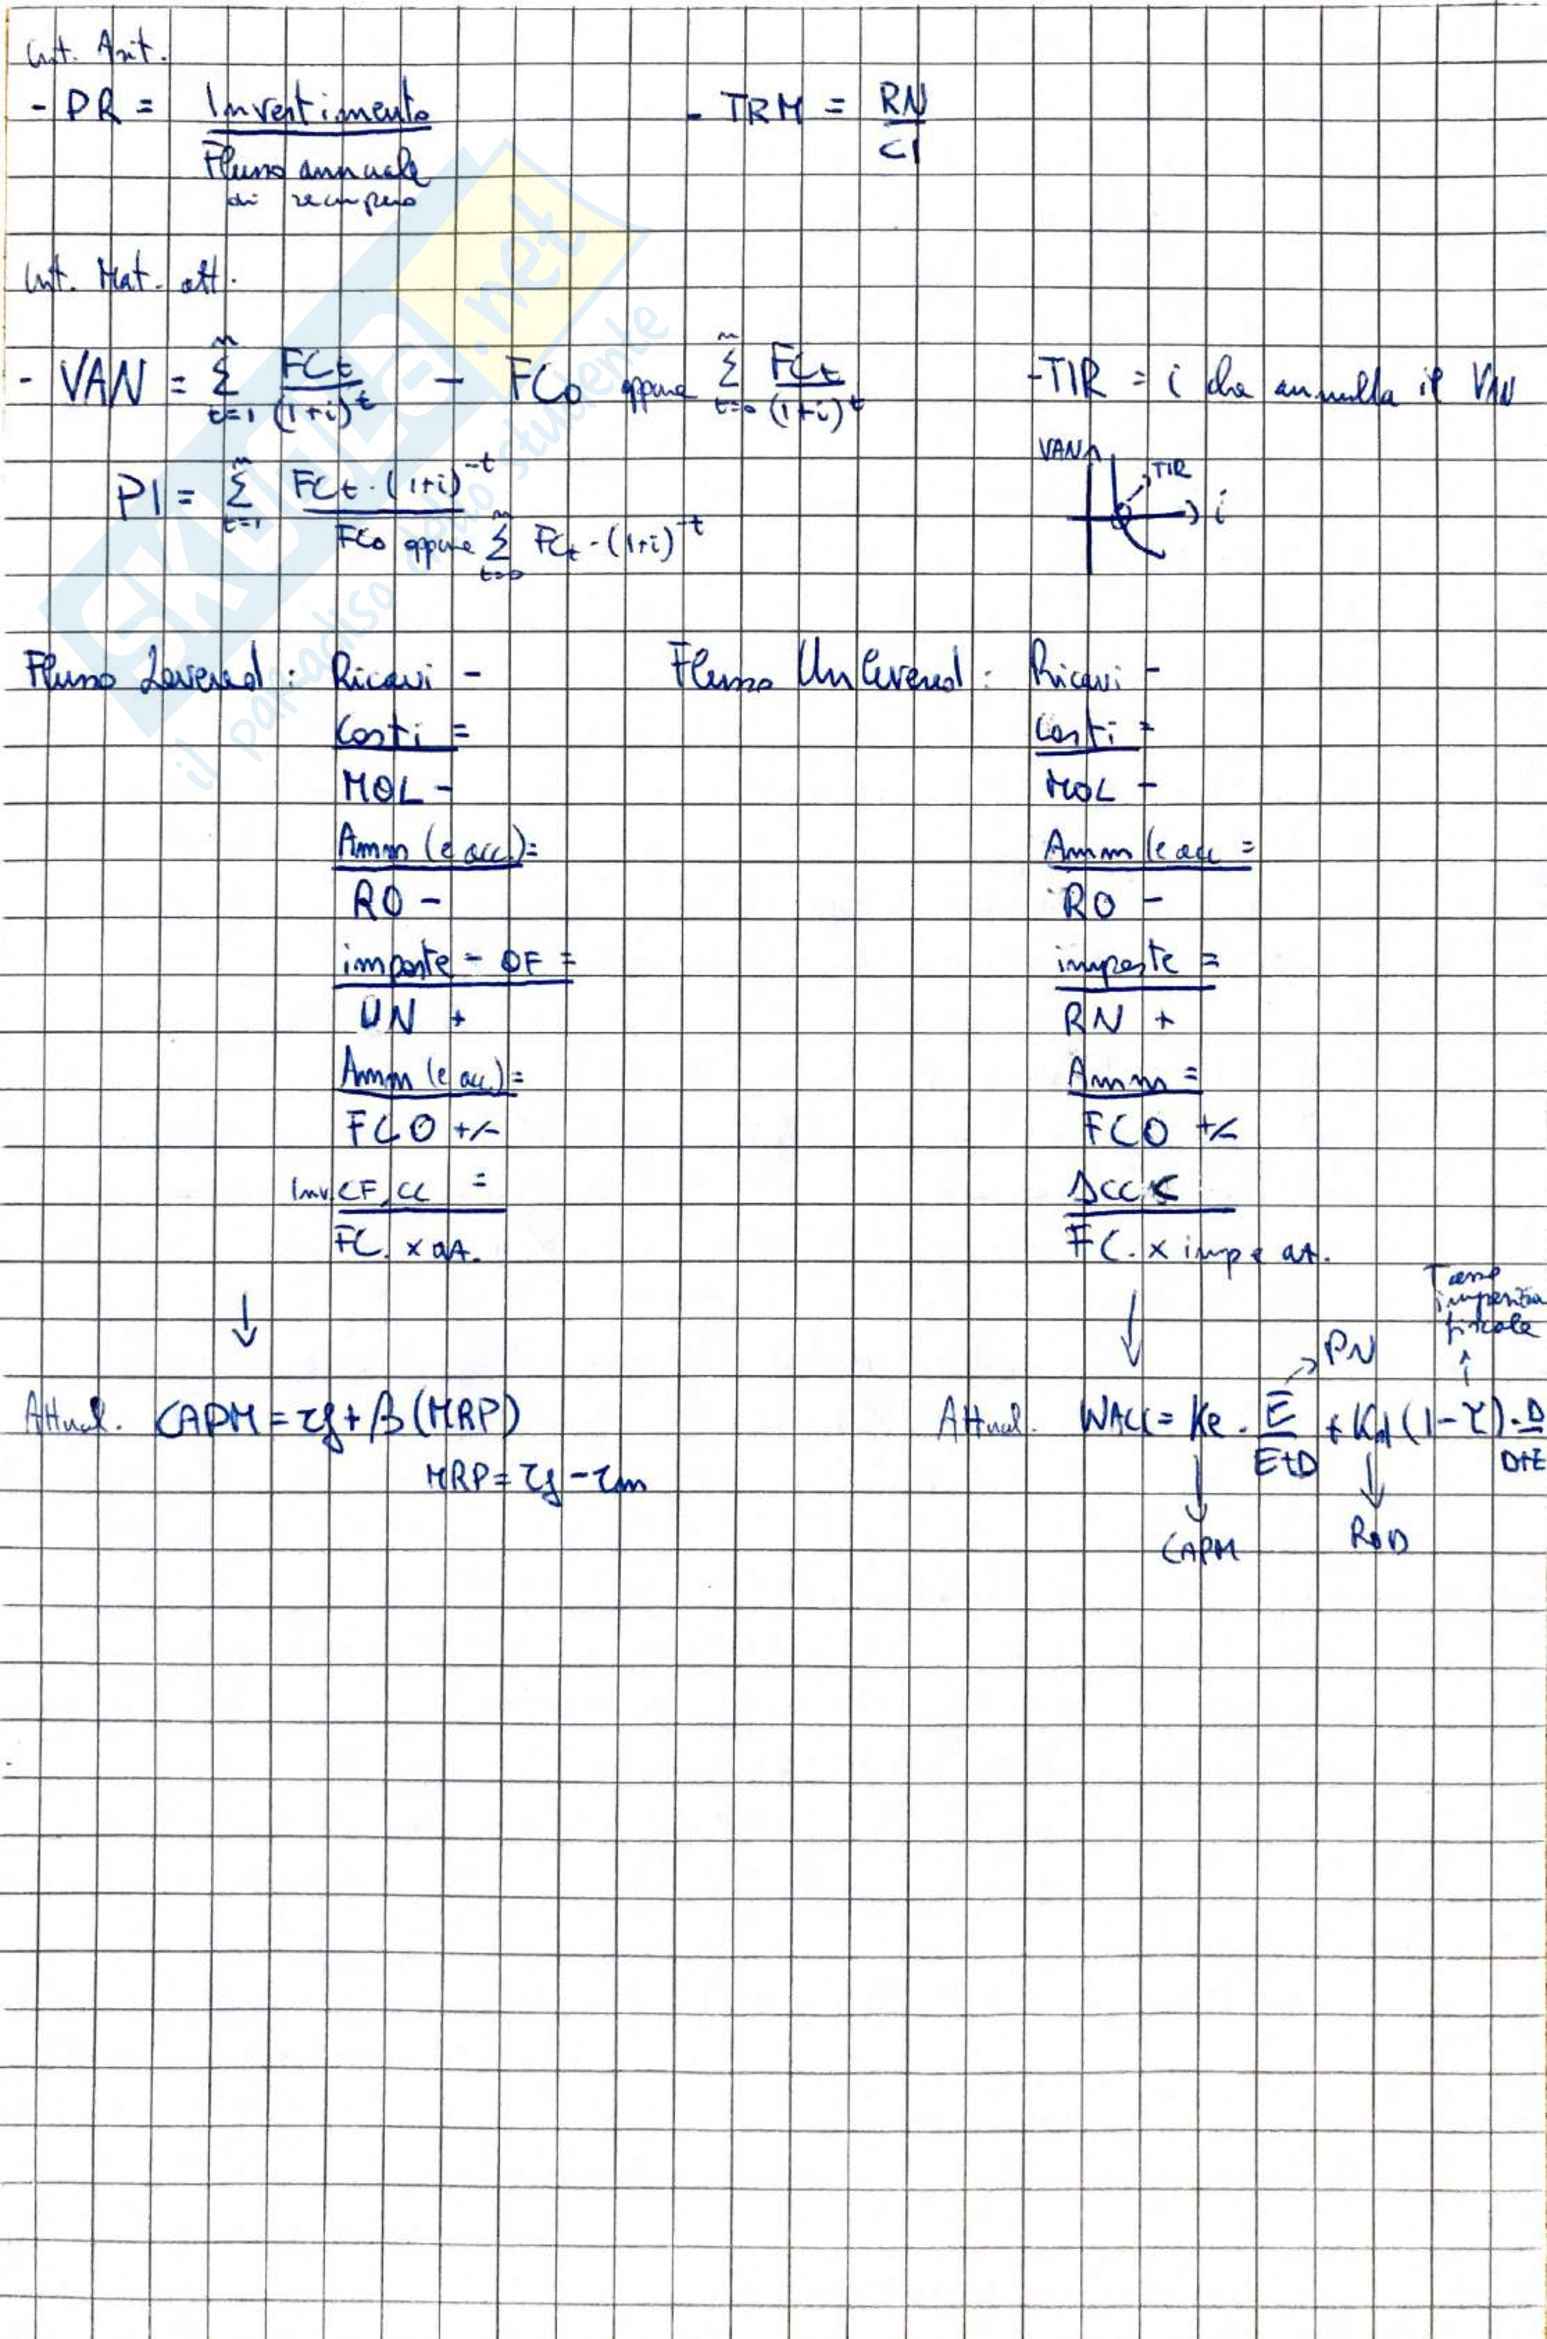 Crit. Arit.
- PR = Investimento / Flusso annuale di recupero
- TRM = RN / CI
Crit. Mat. att.
- VAN = Σ_{t=1}^{n} FCt / (1+i)^t - FC0 oppure Σ_{t=0}^{n} FCt / (1+i)^t
- TIR = i che annulla il VAN
VAN
TIR
i
PI = Σ_{t=1}^{n} FCt · (1+i)^-t / FC0 oppure Σ_{t=0}^{n} FCt · (1+i)^-t
Flusso Levered: Ricavi -
Costi =
MOL -
Amm (e acc.) =
RO -
imposte - OF =
UN +
Amm (e acc.) =
FCO +/-
Inv. CF, CC =
FC. x az.
↓
Attual. CAPM = rf + β (MRP)
MRP = rf - rm
Flusso Unlevered: Ricavi -
Costi =
MOL -
Amm (e acc =
RO -
imposte =
RN +
Amm =
FCO +/-
ΔCC
FC. x imp e az.
↓
Attual. WACC = Ke · E / E+D + Kd (1-τ) · D / D+E
PN
fiscale
CAPM
ROD
SKUOLA.net
il paradiso dello studente